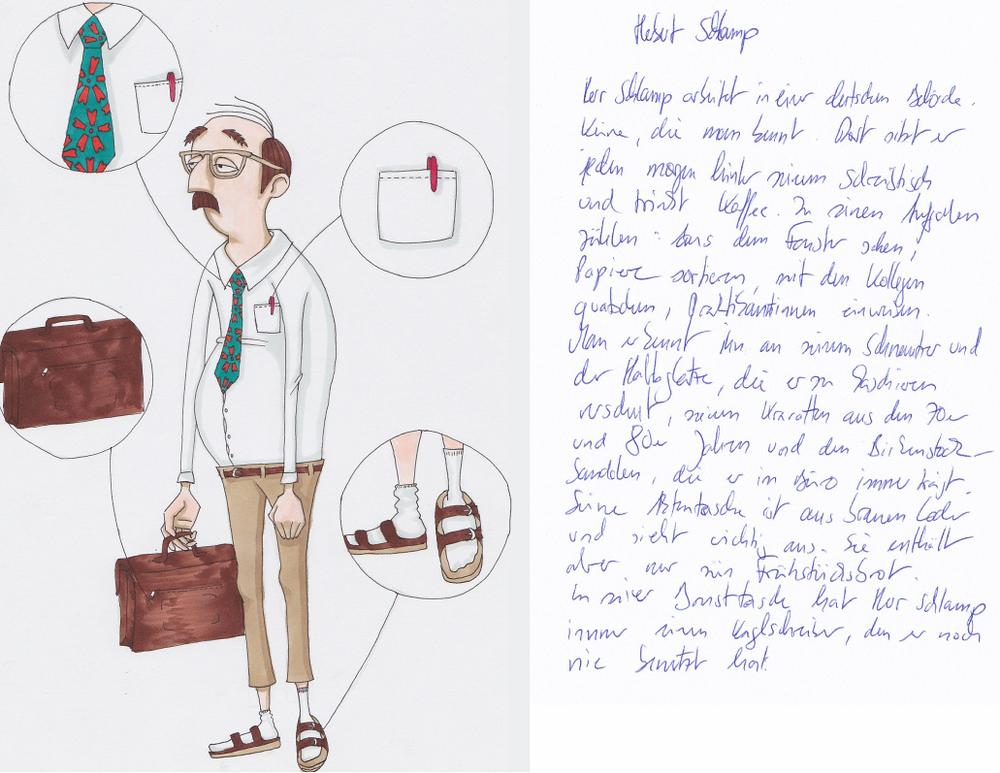 Hebert Schlamp
Herr Schlamp arbeitet in einer deutschen Behörde.
Keine, die man kennt. Dort sitzt er
jeden morgen hinter seinem Schreibtisch
und trinkt Kaffee. Zu seinen Aufgaben
zählen: aus dem Fenster sehen,
Papiere sortieren, mit den Kollegen
quatschen, Praktikantinnen einweisen.
Man erkennt ihn an seinem Schnauzer und
der Halbglatze, die er zu kaschieren
versucht, seinen Krawatten aus den 70er
und 80er Jahren und den Birkenstock-
Sandalen, die er im Büro immer trägt.
Seine Aktentasche ist aus braunem Leder
und sieht wichtig aus. Sie enthält
aber nur sein Frühstücksbrot.
In seiner Brusttasche hat Herr Schlamp
immer einen Kuglschreiber, den er noch
nie benutzt hat.